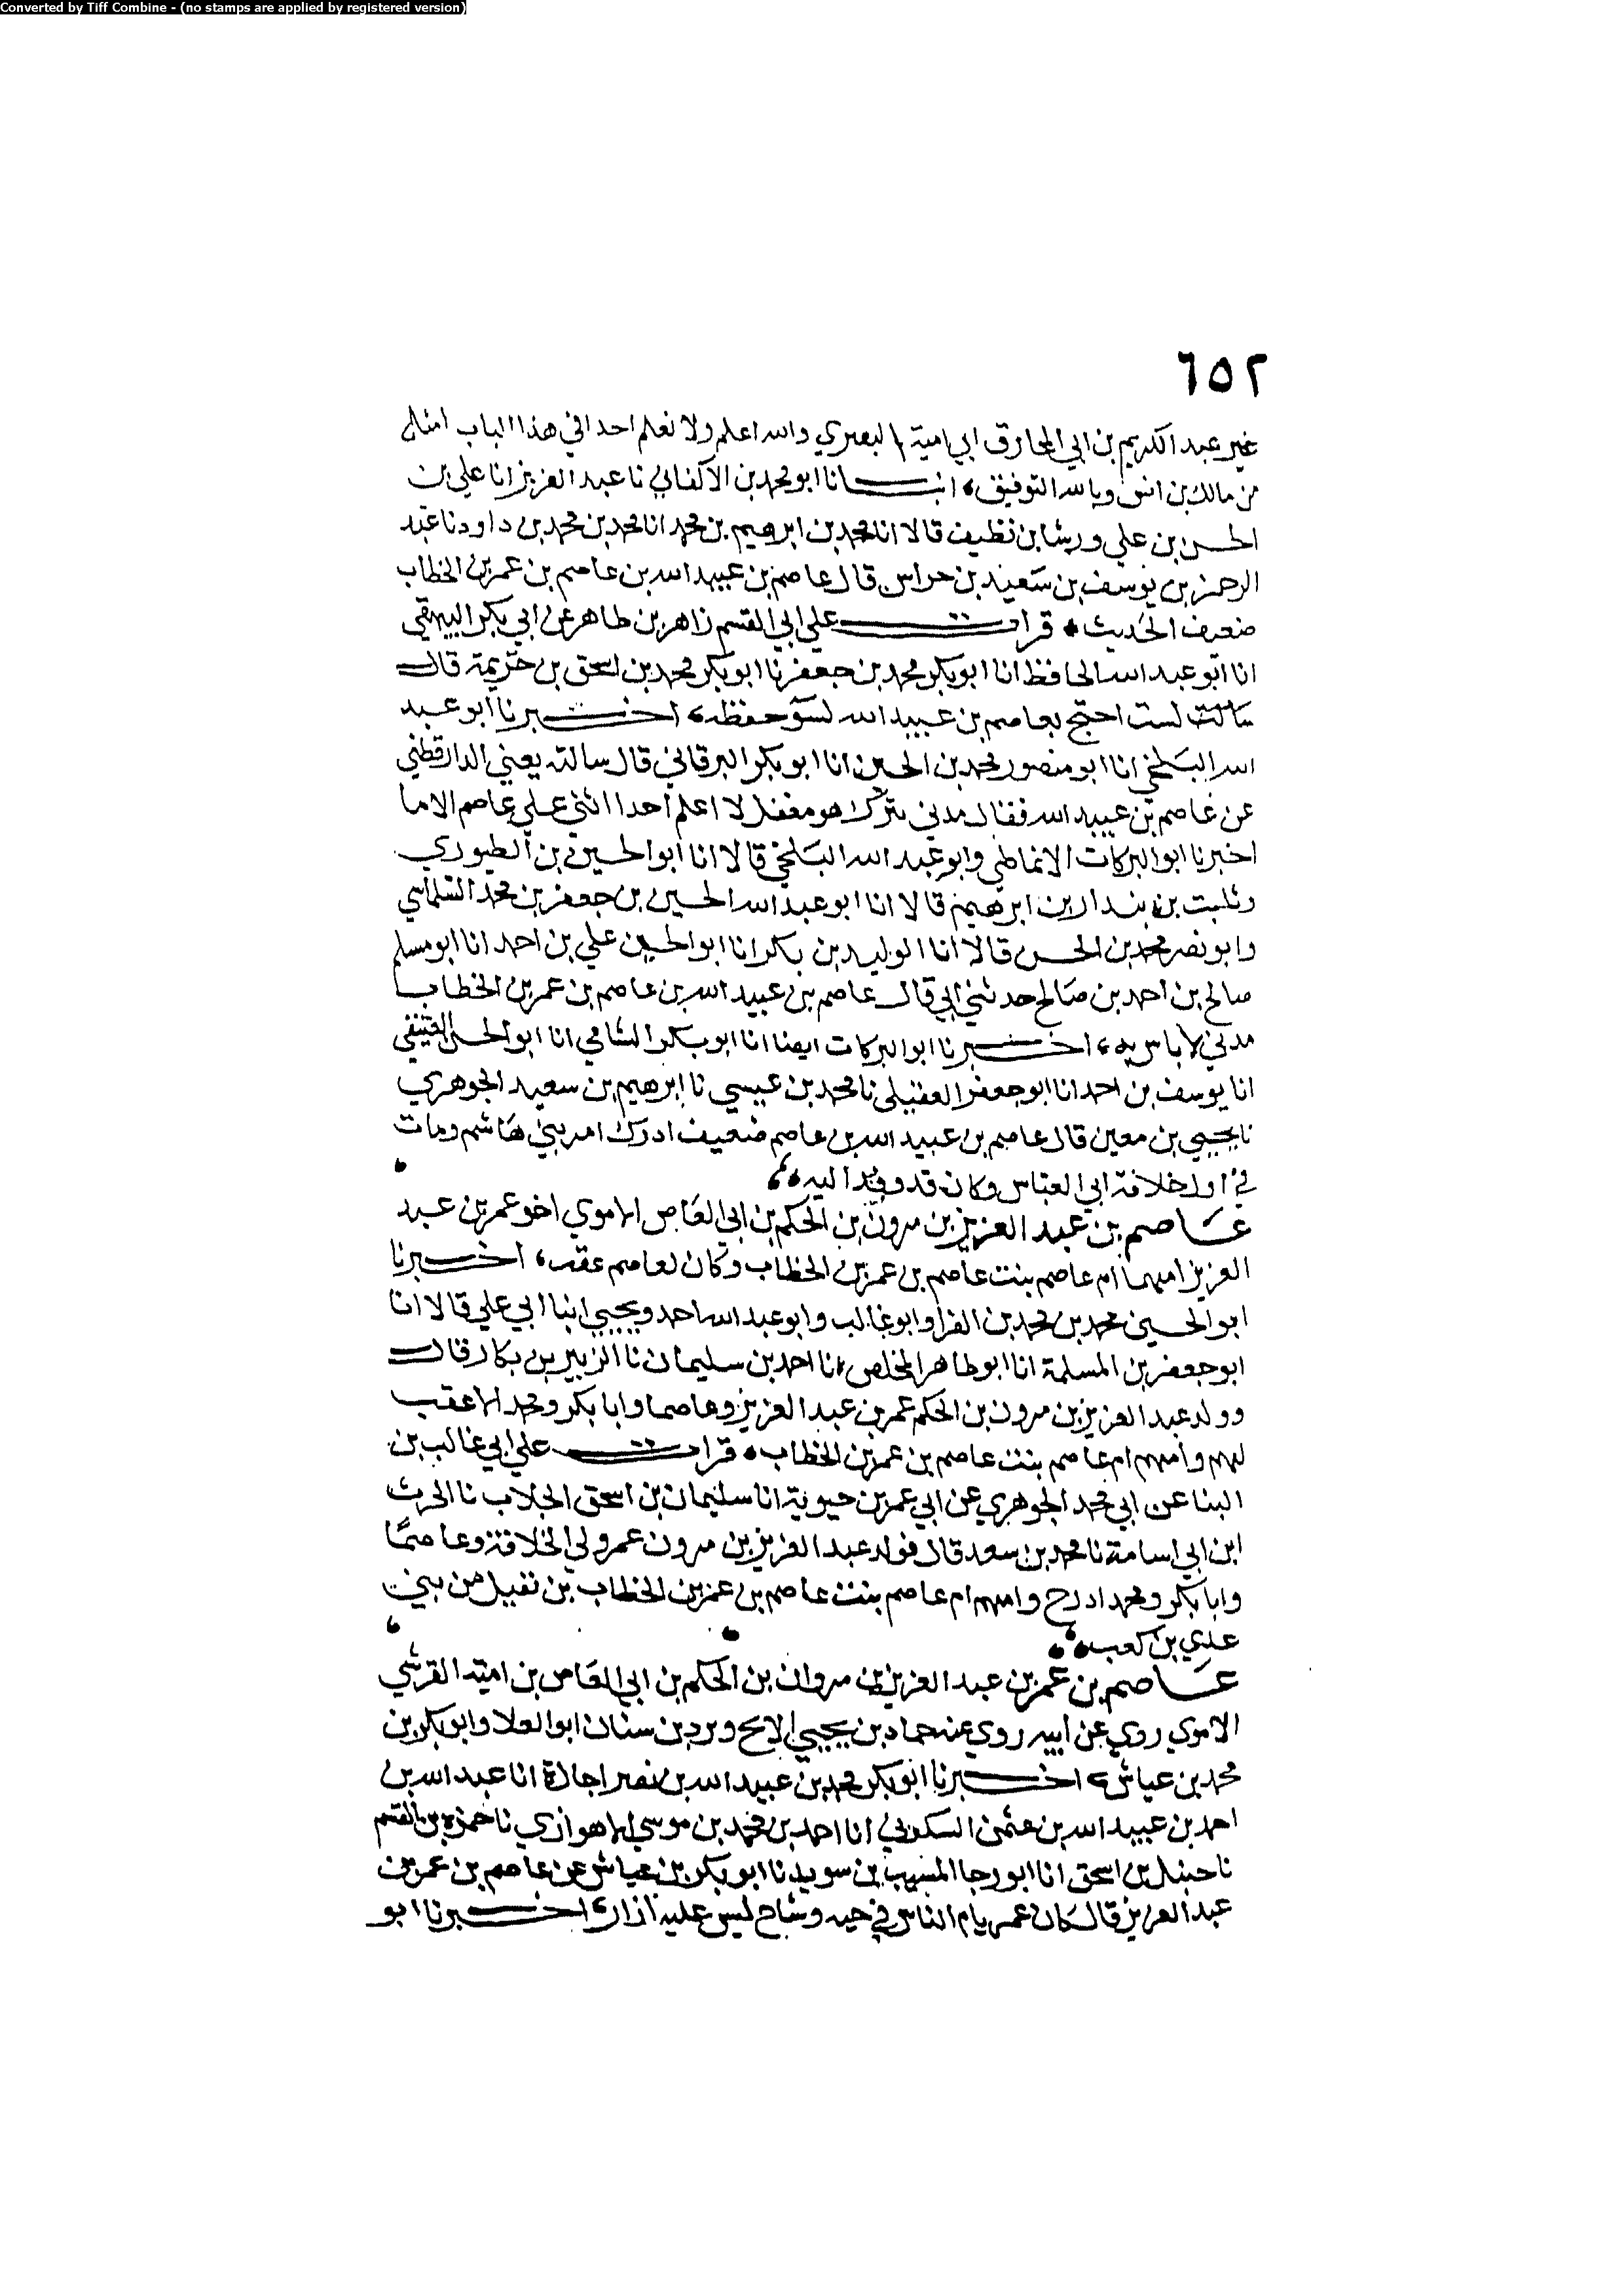 Converted by Tiff Combine - (no stamps are applied by registered version)
٦٥٢
غير عبد الكريم بن ابي المخارق ابي امية البصري والله اعلم ولا نعلم احدا في هذا الباب امثل
من مالك بن انس وبالله التوفيق، انبـــانا ابو محمد بن الاكفاني نا عبد العزيز انا علي بن
الحسن بن علي ورشا بن نظيف قالا انا محمد بن ابرهيم بن محمد انا محمد بن محمد بن داود نا عبد
الرحمن بن يوسف بن سعيد بن خراس قال عاصم بن عبيد الله بن عاصم بن عمر بن الخطاب
ضعيف الحديث، قرات علي ابي القسم زاهر بن طاهر عن ابي بكر البيهقي
انا ابو عبد الله الحافظ انا ابو بكر محمد بن جعفر نا ابو بكر محمد بن اسحق بن خزيمة قال
سالت لست احتج بعاصم بن عبيد الله لسو حفظه، اخـــبرنا ابو عبد
الله البلخي انا ابو منصور محمد بن الحسين انا ابو بكر البرقاني قال سالته يعني الدارقطني
عن عاصم بن عبيد الله فقال مدني يترك هو مغفل لا اعلم احدا اثنى علي عاصم الا ما
اخبرنا ابو البركات الانماطي وابو عبد الله البلخي قالا انا ابو الحسين بن الطيوري
وثابت بن بندار بن ابرهيم قالا انا ابو عبد الله الحسين بن جعفر بن محمد السلماسي
وابو نصر محمد بن الحسن قالا انا الوليد بن بكر انا ابو الحسين علي بن احمد انا ابو مسلم
صالح بن احمد بن صالح حدثني ابي قال عاصم بن عبيد الله بن عاصم بن عمر بن الخطاب
مدني لا باس به، اخـــبرنا ابو البركات ايضا انا ابو بكر الشامي انا ابو الحسن العتيقي
انا يوسف بن احمد انا ابو جعفر العقيلي نا محمد بن عيسي نا ابرهيم بن سعيد الجوهري
نا يحيي بن معين قال عاصم بن عبيد الله بن عاصم ضعيف ادرك امر بني هاشم ومات
في اول خلافة ابي العباس وكان قد وفد اليه،،
عـــاصم بن عبد العزيز بن مرون بن الحكم بن ابي العاص الاموي اخو عمر بن عبد
العزيز امهما ام عاصم بنت عاصم بن عمر بن الخطاب وكان لعاصم عقب، اخـــبرنا
ابو الحسين محمد بن محمد بن الفرا وابو غالب وابو عبد الله احمد ويحيي ابنا ابي علي قالا انا
ابو جعفر بن المسلمة انا ابو طاهر المخلص انا احمد بن سليمان نا الزبير بن بكار قال
وولد عبد العزيز بن مرون بن الحكم عمر بن عبد العزيز وعاصما وابا بكر ومحمد الا عقب
لهم وامهم ام عاصم بنت عاصم بن عمر بن الخطاب، قرات علي ابي غالب بن
البنا عن ابي محمد الجوهري عن ابي عمر بن حيوية انا سليمان بن اسحق الجلاب نا الحرث
ابن ابي اسامة نا محمد بن سعد قال فولد عبد العزيز بن مرون عمر ولي الخلافة وعاصما
وابا بكر ومحمد ادرج وامهم ام عاصم بنت عاصم بن عمر بن الخطاب بن نفيل من بني
عدي بن كعب،،
عـــاصم بن عمر بن عبد العزيز بن مروان بن الحكم بن ابي العاص بن امية القرشي
الاموي روي عن ابيه روي عنه حماد بن يحيي الابح وبرد بن سنان ابو العلا وابو بكر بن
محمد بن عياش، اخـــبرنا ابو بكر محمد بن عبيد الله بن نصر اجازة انا عبد الله بن
احمد بن عبيد الله بن عثمن السكري انا احمد بن محمد بن موسي الاهوازي نا حمزة بن القسم
نا حنبل بن اسحق انا ابو رجا المسيب بن سويد نا ابو بكر بن عياش عن عاصم بن عمر بن
عبد العزيز قال كان عمر يام الناس في جبه وساج ليس عليه ازار، اخـــبرنا ابو